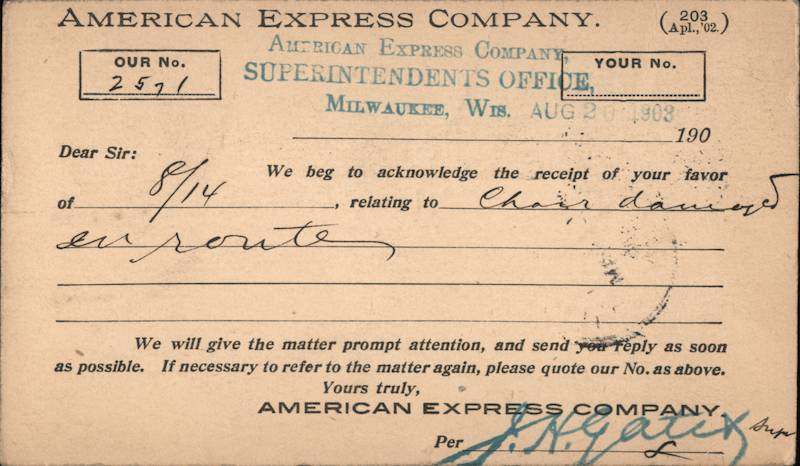 AMERICAN EXPRESS COMPANY.
(203 Apl., '02.)
AMERICAN EXPRESS COMPANY,
SUPERINTENDENTS OFFICE,
MILWAUKEE, WIS. AUG 20 1903
OUR No.
2571
YOUR No.
190
Dear Sir:
We beg to acknowledge the receipt of your favor
of 8/14, relating to Chair damaged
en route
We will give the matter prompt attention, and send you reply as soon
as possible. If necessary to refer to the matter again, please quote our No. as above.
Yours truly,
AMERICAN EXPRESS COMPANY.
Per J. H. Gates Supt